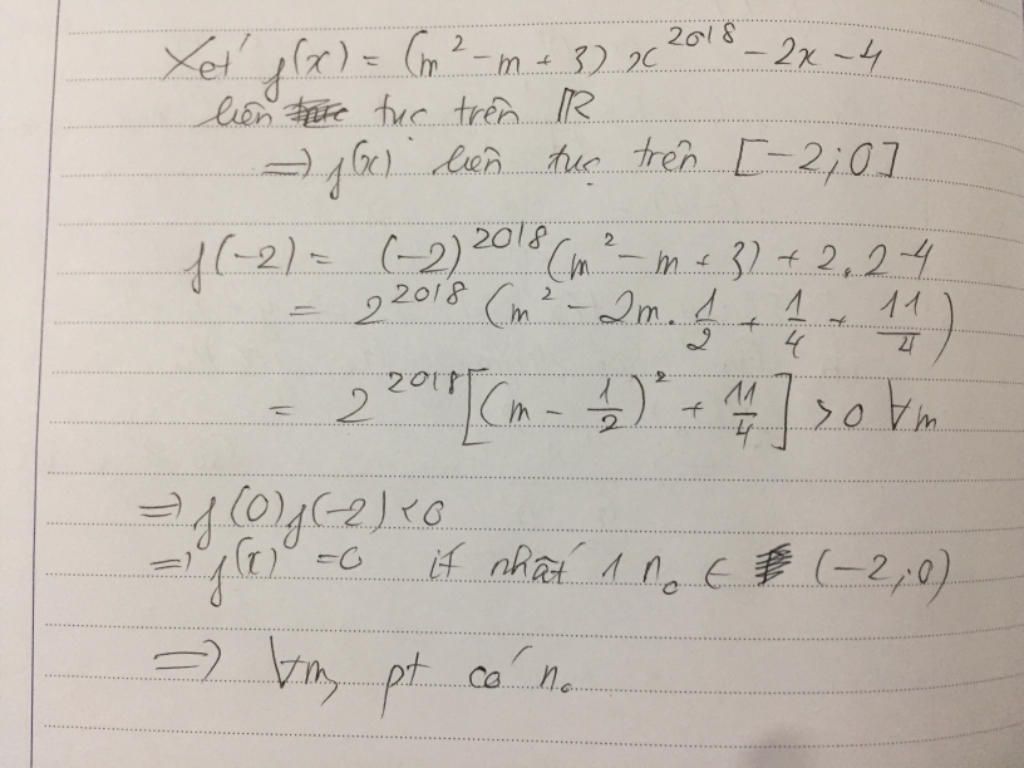 Xét f(x) = (m² - m + 3) x²⁰¹⁸ - 2x - 4
liên tục trên ℝ
=> f(x) liên tục trên [-2;0]
f(-2) = (-2)²⁰¹⁸ (m² - m + 3) + 2.2-4
= 2²⁰¹⁸ (m² - 2m. 1/2 + 1/4 + 11/4)
= 2²⁰¹⁸ [(m - 1/2)² + 11/4] > 0 ∀m
=> f(0)f(-2) < 0
=> f(x) = 0 ít nhất 1 n₀ ∈ (-2;0)
=> ∀m, pt có n₀